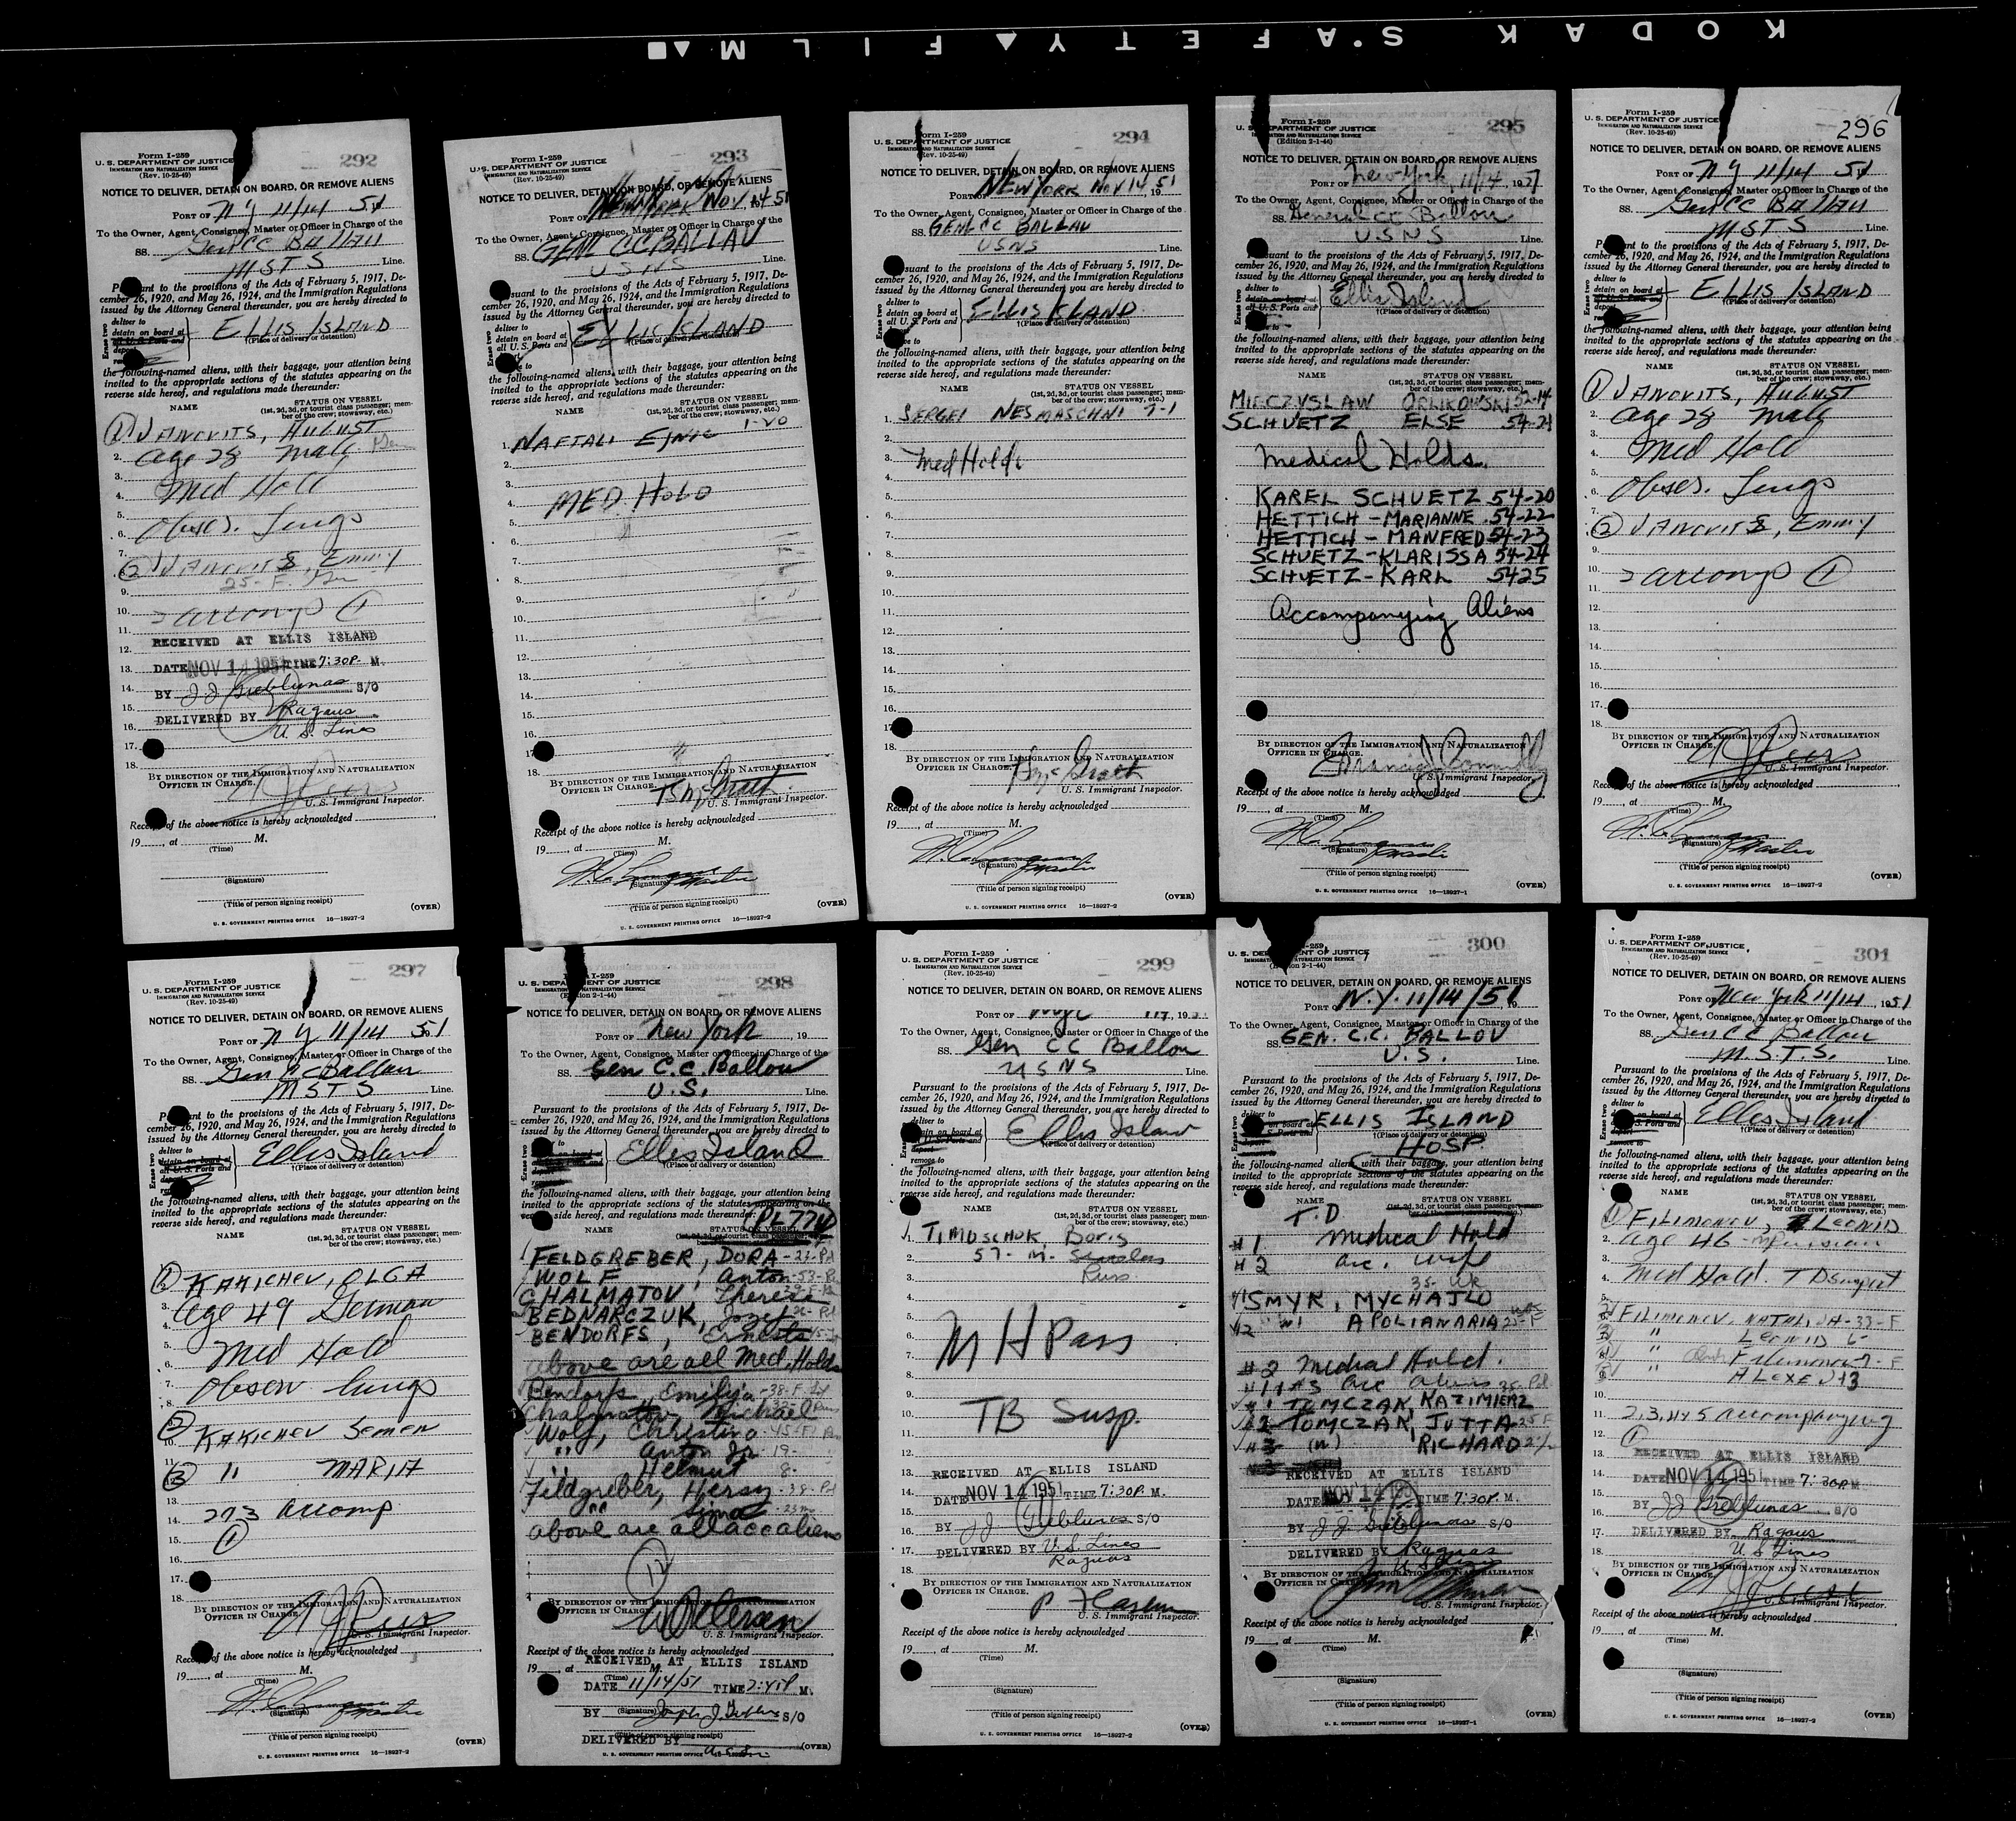 KODAK SAFETY FILM
Form I-259
U. S. DEPARTMENT OF JUSTICE
IMMIGRATION AND NATURALIZATION SERVICE
(Rev. 10-25-49)
292
NOTICE TO DELIVER, DETAIN ON BOARD, OR REMOVE ALIENS
PORT OF N Y 11/14 51
To the Owner, Agent, Consignee, Master or Officer in Charge of the
SS. Gen CC BALLAU
MSTS Line.
Pursuant to the provisions of the Acts of February 5, 1917, De-
cember 26, 1920, and May 26, 1924, and the Immigration Regulations
issued by the Attorney General thereunder, you are hereby directed to
Erase two
deliver to
detain on board at
all U. S. Ports and
ELLIS ISLAND
(Place of delivery or detention)
the following-named aliens, with their baggage, your attention being
invited to the appropriate sections of the statutes appearing on the
reverse side hereof, and regulations made thereunder:
NAME STATUS ON VESSEL
(1st, 2d, 3d, or tourist class passenger; mem-
ber of the crew; stowaway, etc.)
1 JANOVITS, AUGUST
2. age 28 male
3.
4. Med Hold
5.
6. Obser. Lungs
7.
2 JANOVITS, Emmy
25 - F.
9.
10. 2 accomp 1
11.
12. RECEIVED AT ELLIS ISLAND
13. DATE NOV 14 1951 TIME 7:30P. M.
14. BY J J Grebliunas S/O
15.
16. DELIVERED BY Ragaus
U. S. Lines
17.
18.
BY DIRECTION OF THE IMMIGRATION AND NATURALIZATION
OFFICER IN CHARGE.
U. S. Immigrant Inspector.
Receipt of the above notice is hereby acknowledged
19 , at M.
(Time)
(Signature)
(Title of person signing receipt)
(OVER)
U. S. GOVERNMENT PRINTING OFFICE 16—18927-2
Form I-259
U. S. DEPARTMENT OF JUSTICE
IMMIGRATION AND NATURALIZATION SERVICE
(Rev. 10-25-49)
293
NOTICE TO DELIVER, DETAIN ON BOARD, OR REMOVE ALIENS
PORT OF NEW YORK NOV 14 51
To the Owner, Agent, Consignee, Master or Officer in Charge of the
SS. GENL CC BALLAU
USNS Line.
Pursuant to the provisions of the Acts of February 5, 1917, De-
cember 26, 1920, and May 26, 1924, and the Immigration Regulations
issued by the Attorney General thereunder, you are hereby directed to
Erase two
deliver to
detain on board at
all U. S. Ports and
ELLIS ISLAND
(Place of delivery or detention)
the following-named aliens, with their baggage, your attention being
invited to the appropriate sections of the statutes appearing on the
reverse side hereof, and regulations made thereunder:
NAME STATUS ON VESSEL
(1st, 2d, 3d, or tourist class passenger; mem-
ber of the crew; stowaway, etc.)
1. NAFTALI EJNIC 1-20
2.
3.
4. MED HOLD
5.
6.
7.
8.
9.
10.
11.
12.
13.
14.
15.
16.
17.
18.
BY DIRECTION OF THE IMMIGRATION AND NATURALIZATION
OFFICER IN CHARGE.
U. S. Immigrant Inspector.
Receipt of the above notice is hereby acknowledged
19 , at M.
(Time)
(Signature) Master
(Title of person signing receipt)
(OVER)
U. S. GOVERNMENT PRINTING OFFICE 16—18927-2
Form I-259
U. S. DEPARTMENT OF JUSTICE
IMMIGRATION AND NATURALIZATION SERVICE
(Rev. 10-25-49)
294
NOTICE TO DELIVER, DETAIN ON BOARD, OR REMOVE ALIENS
PORT OF NEW YORK NOV 14 1951
To the Owner, Agent, Consignee, Master or Officer in Charge of the
SS. GENL CC BALLAU
USNS Line.
Pursuant to the provisions of the Acts of February 5, 1917, De-
cember 26, 1920, and May 26, 1924, and the Immigration Regulations
issued by the Attorney General thereunder, you are hereby directed to
Erase two
deliver to
detain on board at
all U. S. Ports and
ELLIS ISLAND
(Place of delivery or detention)
the following-named aliens, with their baggage, your attention being
invited to the appropriate sections of the statutes appearing on the
reverse side hereof, and regulations made thereunder:
NAME STATUS ON VESSEL
(1st, 2d, 3d, or tourist class passenger; mem-
ber of the crew; stowaway, etc.)
1. SERGEI NESMASCHNI 7-1
2.
3. Med Hold
4.
5.
6.
7.
8.
9.
10.
11.
12.
13.
14.
15.
16.
17.
18.
BY DIRECTION OF THE IMMIGRATION AND NATURALIZATION
OFFICER IN CHARGE.
U. S. Immigrant Inspector.
Receipt of the above notice is hereby acknowledged
19 , at M.
(Time)
(Signature) Master
(Title of person signing receipt)
(OVER)
U. S. GOVERNMENT PRINTING OFFICE 16—18927-2
Form I-259
U. S. DEPARTMENT OF JUSTICE
IMMIGRATION AND NATURALIZATION SERVICE
(Edition 2-1-44)
295
NOTICE TO DELIVER, DETAIN ON BOARD, OR REMOVE ALIENS
PORT OF New York, 11/14, 1951
To the Owner, Agent, Consignee, Master or Officer in Charge of the
SS. General CC Ballou
USNS Line.
Pursuant to the provisions of the Acts of February 5, 1917, De-
cember 26, 1920, and May 26, 1924, and the Immigration Regulations
issued by the Attorney General thereunder, you are hereby directed to
Erase two
deliver to
detain on board at
all U. S. Ports and
Ellis Island
(Place of delivery or detention)
the following-named aliens, with their baggage, your attention being
invited to the appropriate sections of the statutes appearing on the
reverse side hereof, and regulations made thereunder:
NAME STATUS ON VESSEL
(1st, 2d, 3d, or tourist class passenger; mem-
ber of the crew; stowaway, etc.)
MIECZYSLAW ORLIKOWSKI 52-14
SCHUETZ ELSE 54-21
Medical Holds.
KAREL SCHUETZ 54-20
HETTICH - MARIANNE 54-22
HETTICH - MANFRED 54-23
SCHUETZ - KLARISSA 54-24
SCHUETZ - KARL 5425
Accompanying Aliens
BY DIRECTION OF THE IMMIGRATION AND NATURALIZATION
OFFICER IN CHARGE.
U. S. Immigrant Inspector.
Receipt of the above notice is hereby acknowledged
19 , at M.
(Time)
(Signature)
(Title of person signing receipt)
(OVER)
U. S. GOVERNMENT PRINTING OFFICE 16—18927-1
Form I-259
U. S. DEPARTMENT OF JUSTICE
IMMIGRATION AND NATURALIZATION SERVICE
(Rev. 10-25-49)
296
NOTICE TO DELIVER, DETAIN ON BOARD, OR REMOVE ALIENS
PORT OF N Y 11/14 51
To the Owner, Agent, Consignee, Master or Officer in Charge of the
SS. Gen CC BALLAU
MSTS Line.
Pursuant to the provisions of the Acts of February 5, 1917, De-
cember 26, 1920, and May 26, 1924, and the Immigration Regulations
issued by the Attorney General thereunder, you are hereby directed to
Erase two
deliver to
detain on board at
all U. S. Ports and
ELLIS ISLAND
(Place of delivery or detention)
the following-named aliens, with their baggage, your attention being
invited to the appropriate sections of the statutes appearing on the
reverse side hereof, and regulations made thereunder:
NAME STATUS ON VESSEL
(1st, 2d, 3d, or tourist class passenger; mem-
ber of the crew; stowaway, etc.)
1 JANOVITS, AUGUST
2. age 28 male
3.
4. Med Hold
5.
6. Obser. Lungs
7.
2 JANOVITS, Emmy
9.
10. 2 accomp 1
11.
12.
13.
14.
15.
16.
17.
18.
BY DIRECTION OF THE IMMIGRATION AND NATURALIZATION
OFFICER IN CHARGE.
U. S. Immigrant Inspector.
Receipt of the above notice is hereby acknowledged
19 , at M.
(Time)
(Signature) Master
(Title of person signing receipt)
(OVER)
U. S. GOVERNMENT PRINTING OFFICE 16—18927-2
Form I-259
U. S. DEPARTMENT OF JUSTICE
IMMIGRATION AND NATURALIZATION SERVICE
(Rev. 10-25-49)
297
NOTICE TO DELIVER, DETAIN ON BOARD, OR REMOVE ALIENS
PORT OF N Y 11/14 51
To the Owner, Agent, Consignee, Master or Officer in Charge of the
SS. Gen CC Ballou
MSTS Line.
Pursuant to the provisions of the Acts of February 5, 1917, De-
cember 26, 1920, and May 26, 1924, and the Immigration Regulations
issued by the Attorney General thereunder, you are hereby directed to
Erase two
deliver to
detain on board at
all U. S. Ports and
Ellis Island
(Place of delivery or detention)
the following-named aliens, with their baggage, your attention being
invited to the appropriate sections of the statutes appearing on the
reverse side hereof, and regulations made thereunder:
NAME STATUS ON VESSEL
(1st, 2d, 3d, or tourist class passenger; mem-
ber of the crew; stowaway, etc.)
1 KAKICHEV, OLGA
3. Age 49 German
4.
5. Med Hold
6.
7. Observ lungs
8.
2 KAKICHEV Semen
10.
3 " MARIA
13.
14. 2 & 3 accomp
15. 1
16.
17.
18.
BY DIRECTION OF THE IMMIGRATION AND NATURALIZATION
OFFICER IN CHARGE.
U. S. Immigrant Inspector.
Receipt of the above notice is hereby acknowledged
19 , at M.
(Time)
(Signature) Master
(Title of person signing receipt)
(OVER)
U. S. GOVERNMENT PRINTING OFFICE 16—18927-2
Form I-259
U. S. DEPARTMENT OF JUSTICE
IMMIGRATION AND NATURALIZATION SERVICE
(Edition 2-1-44)
298
NOTICE TO DELIVER, DETAIN ON BOARD, OR REMOVE ALIENS
PORT OF New York , 19
To the Owner, Agent, Consignee, Master or Officer in Charge of the
SS. Gen C.C. Ballou
U.S. Line.
Pursuant to the provisions of the Acts of February 5, 1917, De-
cember 26, 1920, and May 26, 1924, and the Immigration Regulations
issued by the Attorney General thereunder, you are hereby directed to
Ellis Island
(Place of delivery or detention)
the following-named aliens, with their baggage, your attention being
invited to the appropriate sections of the statutes appearing on the
reverse side hereof, and regulations made thereunder: PL 774
NAME STATUS ON VESSEL
FELDGREBER, DORA - 23 - Pol
WOLF, Anton - 53
CHALMATOV, Therese
BEDNARCZUK, Jozef
BENDORFS, Ernests
above are all Med. Holds
Bendorfs, Emilija - 38 - F
Chalmatov Michael
Wolf, Christina - 45 - F
" Anton Jr. 19 -
" Helmut 8 -
Feldgreber, Hersz - 38 - Pol
" Simcl - 23 mo
above are all acc aliens
12
BY DIRECTION OF THE IMMIGRATION AND NATURALIZATION
OFFICER IN CHARGE.
U. S. Immigrant Inspector.
Receipt of the above notice is hereby acknowledged
RECEIVED AT ELLIS ISLAND
19 at M.
(Time)
DATE 11/14/51 TIME 7:45P M.
(Signature)
BY Joseph J. Grebliunas S/O
(Title of person signing receipt)
DELIVERED BY
(OVER)
U. S. GOVERNMENT PRINTING OFFICE
Form I-259
U. S. DEPARTMENT OF JUSTICE
IMMIGRATION AND NATURALIZATION SERVICE
(Rev. 10-25-49)
299
NOTICE TO DELIVER, DETAIN ON BOARD, OR REMOVE ALIENS
PORT OF
To the Owner, Agent, Consignee, Master or Officer in Charge of the
SS. Gen CC Ballou
USNS Line.
Pursuant to the provisions of the Acts of February 5, 1917, De-
cember 26, 1920, and May 26, 1924, and the Immigration Regulations
issued by the Attorney General thereunder, you are hereby directed to
Erase two
deliver to
detain on board at
all U. S. Ports and
remove to
Ellis Island
(Place of delivery or detention)
the following-named aliens, with their baggage, your attention being
invited to the appropriate sections of the statutes appearing on the
reverse side hereof, and regulations made thereunder:
NAME STATUS ON VESSEL
(1st, 2d, 3d, or tourist class passenger; mem-
ber of the crew; stowaway, etc.)
1. TIMOSCHUK Boris
2. 57 - M -
3. Russ.
4.
5.
6. M H Pass
7.
8.
9.
10. TB Susp.
11.
12.
13. RECEIVED AT ELLIS ISLAND
14. DATE NOV 14 1951 TIME 7:30P. M.
15.
16. BY J.J. Grebliunas S/O
17. DELIVERED BY U.S. Lines
Ragaus
18.
BY DIRECTION OF THE IMMIGRATION AND NATURALIZATION
OFFICER IN CHARGE.
U. S. Immigrant Inspector.
Receipt of the above notice is hereby acknowledged
19 , at M.
(Time)
(Signature)
(Title of person signing receipt)
(OVER)
U. S. GOVERNMENT PRINTING OFFICE 16—18927-2
I-259
U. S. DEPARTMENT OF JUSTICE
IMMIGRATION AND NATURALIZATION SERVICE
(Edition 2-1-44)
300
NOTICE TO DELIVER, DETAIN ON BOARD, OR REMOVE ALIENS
PORT OF N.Y. 11/14/51
To the Owner, Agent, Consignee, Master or Officer in Charge of the
SS. GEN. C.C. BALLOU
U.S. Line.
Pursuant to the provisions of the Acts of February 5, 1917, De-
cember 26, 1920, and May 26, 1924, and the Immigration Regulations
issued by the Attorney General thereunder, you are hereby directed to
Erase two
deliver to
ELLIS ISLAND
(Place of delivery or detention)
HOSP.
the following-named aliens, with their baggage, your attention being
invited to the appropriate sections of the statutes appearing on the
reverse side hereof, and regulations made thereunder:
NAME STATUS ON VESSEL
T.D
#1 Medical Hold
#2 acc. wife
#1 SMYK, MYCHAJLO
#2 " APOLIANARIA 25-F
#2 Medical Hold.
#1 & #3 acc aliens
#1 TOMCZAK, KAZIMIERZ
#2 TOMCZAK, JUTTA 25 F
#3 (") RICHARD 2 1/2
RECEIVED AT ELLIS ISLAND
DATE NOV 14 1951 TIME 7:30P. M.
BY J J Grebliunas S/O
DELIVERED BY Ragaus
U S Lines
BY DIRECTION OF THE IMMIGRATION AND NATURALIZATION
OFFICER IN CHARGE.
U. S. Immigrant Inspector.
Receipt of the above notice is hereby acknowledged
19 , at M.
(Time)
(Signature)
(Title of person signing receipt)
(OVER)
U. S. GOVERNMENT PRINTING OFFICE 16—18927-1
Form I-259
U. S. DEPARTMENT OF JUSTICE
IMMIGRATION AND NATURALIZATION SERVICE
(Rev. 10-25-49)
301
NOTICE TO DELIVER, DETAIN ON BOARD, OR REMOVE ALIENS
PORT OF New York 11/14, 1951
To the Owner, Agent, Consignee, Master or Officer in Charge of the
SS. Gen CC Ballou
M.S.T.S. Line.
Pursuant to the provisions of the Acts of February 5, 1917, De-
cember 26, 1920, and May 26, 1924, and the Immigration Regulations
issued by the Attorney General thereunder, you are hereby directed to
Erase two
deliver to
on board at
S. Ports and
remove to
Ellis Island
(Place of delivery or detention)
the following-named aliens, with their baggage, your attention being
invited to the appropriate sections of the statutes appearing on the
reverse side hereof, and regulations made thereunder:
NAME STATUS ON VESSEL
(1st, 2d, 3d, or tourist class passenger; mem-
ber of the crew; stowaway, etc.)
1 FILIMONEV, LEONID
2. age 46 - m
3.
4. Med Hold. TD suspect
5.
2 FILIMONEV, NATALIJA - 33 - F
3 " LEONID 6 -
4 " Filimonov 7 - F
5 " ALEXEJ 13
10.
11. 2, 3, 4 & 5 accompanying
12. 1
13. RECEIVED AT ELLIS ISLAND
14. DATE NOV 14 1951 TIME 7:30P M
15.
16. BY J J Grebliunas S/O
17. DELIVERED BY Ragaus
18. U S Lines
BY DIRECTION OF THE IMMIGRATION AND NATURALIZATION
OFFICER IN CHARGE.
U. S. Immigrant Inspector.
Receipt of the above notice is hereby acknowledged
19 , at M.
(Time)
(Signature)
(Title of person signing receipt)
(OVER)
U. S. GOVERNMENT PRINTING OFFICE 16—18927-2